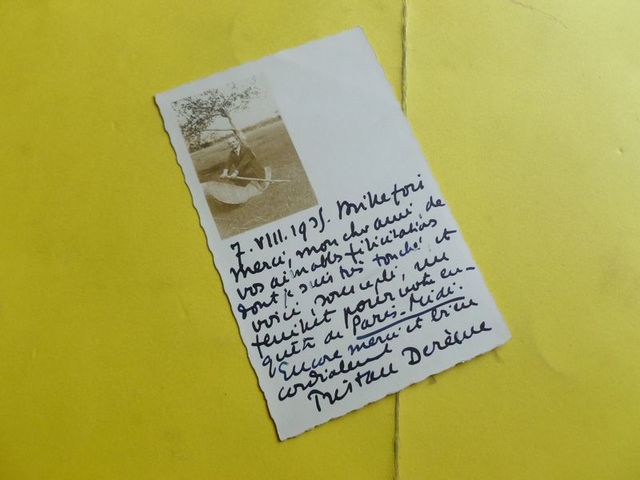 7. VIII. 1935. Mille fois
merci, mon cher ami, de
vos aimables félicitations
dont je suis très touché, et
voici, sous ce pli, un
feuillet pour votre en-
quête de Paris-Midi.
Encore merci et bien
cordialement
Tristan Derème